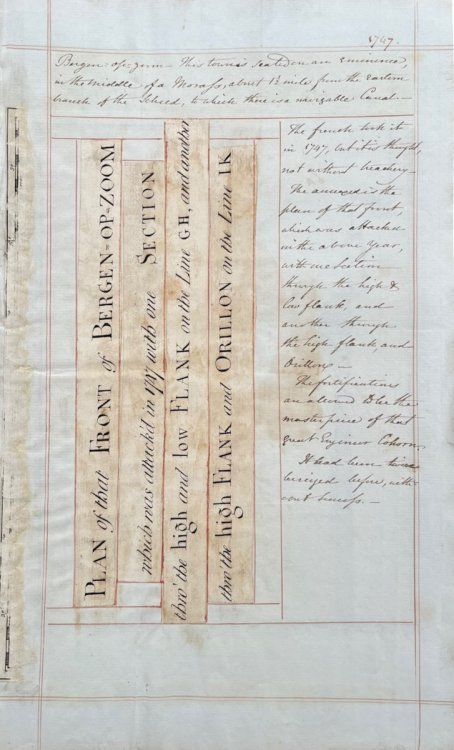 1747.
Bergen-op-zoom – This town is seated on an eminence,
in the middle of a Morass, about 1½ mile from the eastern
branch of the Scheld, to which there is a navigable Canal. —
PLAN of that FRONT of BERGEN-OP-ZOOM
which was attack'd in 1747 with one SECTION
thro' the high and low FLANK on the Line GH, and another
thro' the high FLANK and ORILLON on the Line IK
The french took it
in 1747, but it is thought
not without treachery —
The annexed is the
plan of that front,
which was attacked
in the above year,
with one Section
through the high &
low flank, and
another through
the high flank, and
Orillon —
The fortifications
are allowed to be the
masterpiece of that
great Engineer Cohorn,
It had been twice
besieged before, with-
out success. —